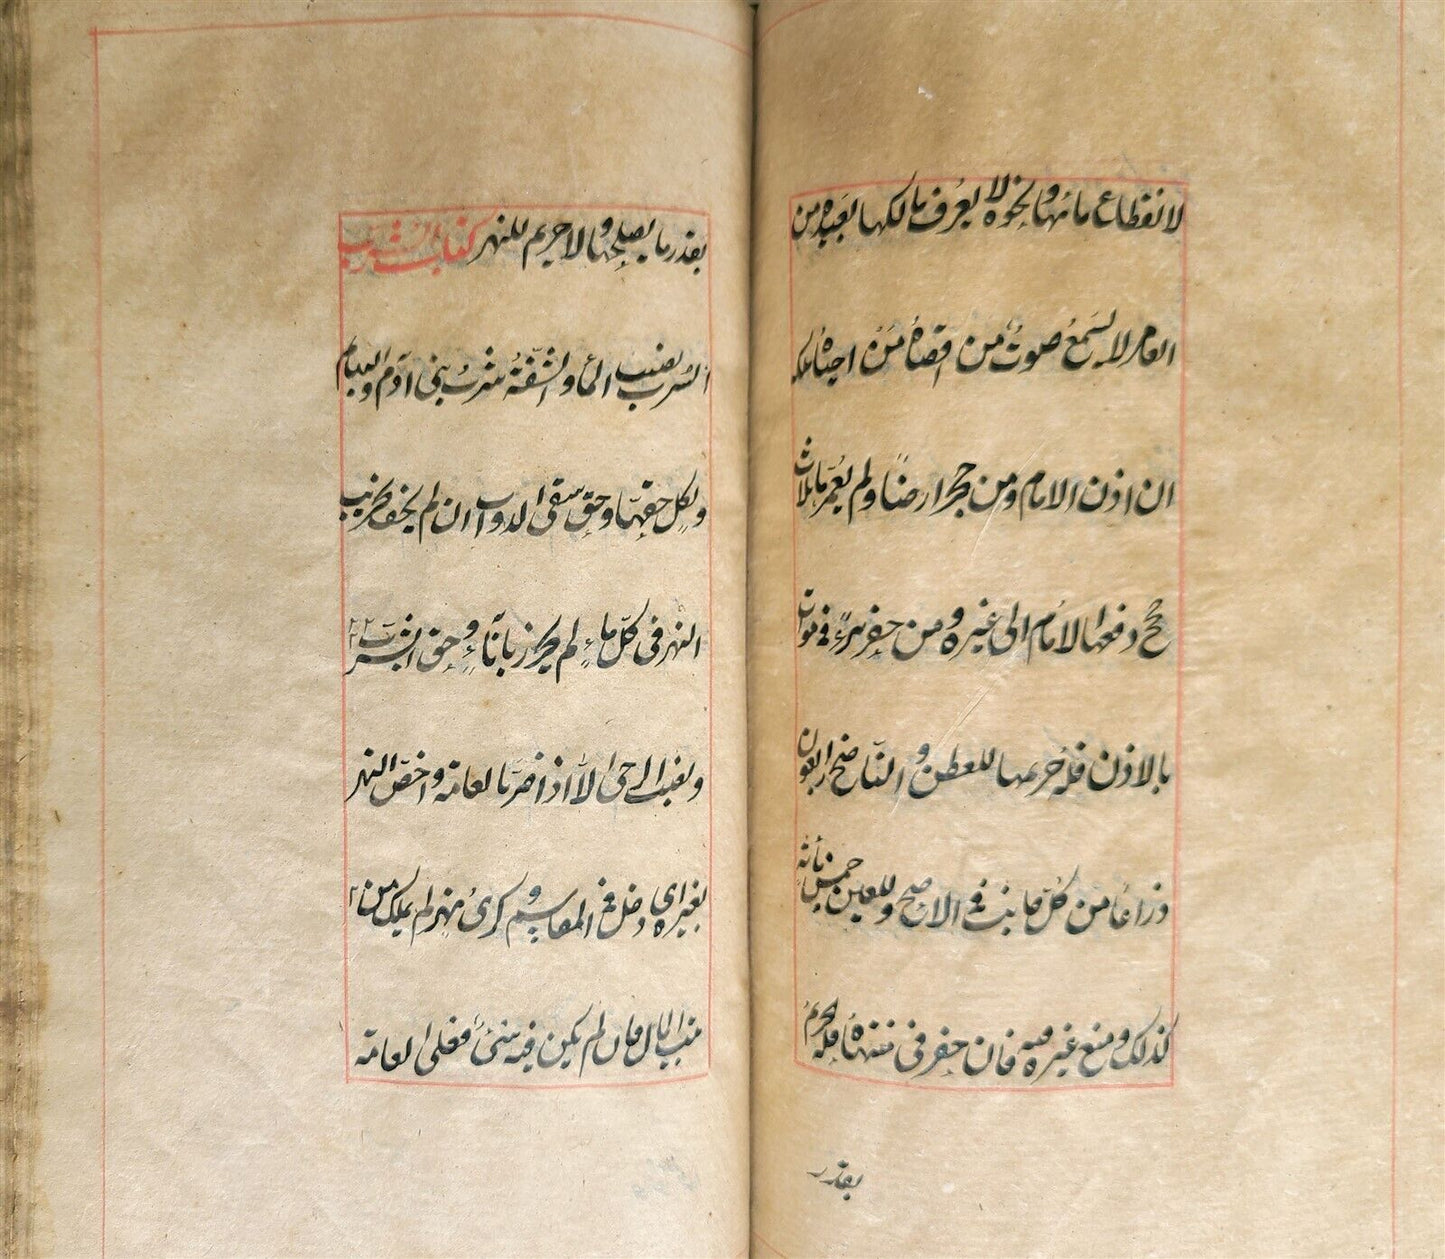 لانقطاع مائها ونحوه لا يعرف مالكها بعيدة من
العامر لا يسمع صوت من اقصاه من احياه ملكه
ان اذن الامام ومن حجر ارضا ولم يعمرها ثلاث
حجج دفعها الامام الى غيره ومن حفر بئرا في موات
بالاذن فله حريمها للعطن و الناضح اربعون
ذراعا من كل جانب في الاصح وللعين خمس مائة
كذلك ومنع غيره منه فان حفر في منتهاه فله حريم
بقدر
بقدر ما يصلحها ولا حريم للنهر كتاب الشرب
الشرب نصيب الماء والشفة شرب بني آدم والبهايم
ولكل حقها وحق سقى الدواب ان لم يخف تخريب
النهر في كل ماء لم يحرز باناء وحق الشرب
الا اذا اضر بالعامة واخص النهر
بغيره اي دخل في المقاسم وكرى نهر لم يملك من
بيت المال فان لم يكن فيه شئ فعلى العامة